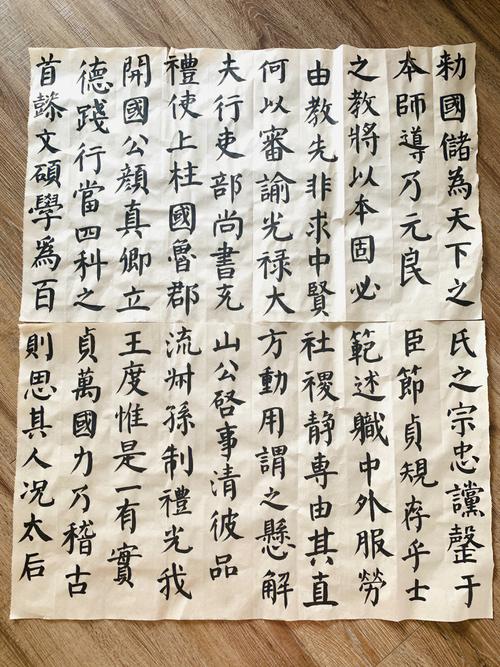 勑國儲為天下之
本師導乃元良
之教將以本固必
由教先非求中賢
何以審諭光禄大
夫行吏部尚書充
禮使上柱國魯郡
開國公顔真卿立
德踐行當四科之
首懿文碩學為百
氏之宗忠讜罄于
臣節貞規存乎士
範述職中外服勞
社稷静専由其直
方動用謂之懸解
山公啓事清彼品
流叔孫制禮光我
王度惟是一有實
貞萬國力乃稽古
則思其人况太后